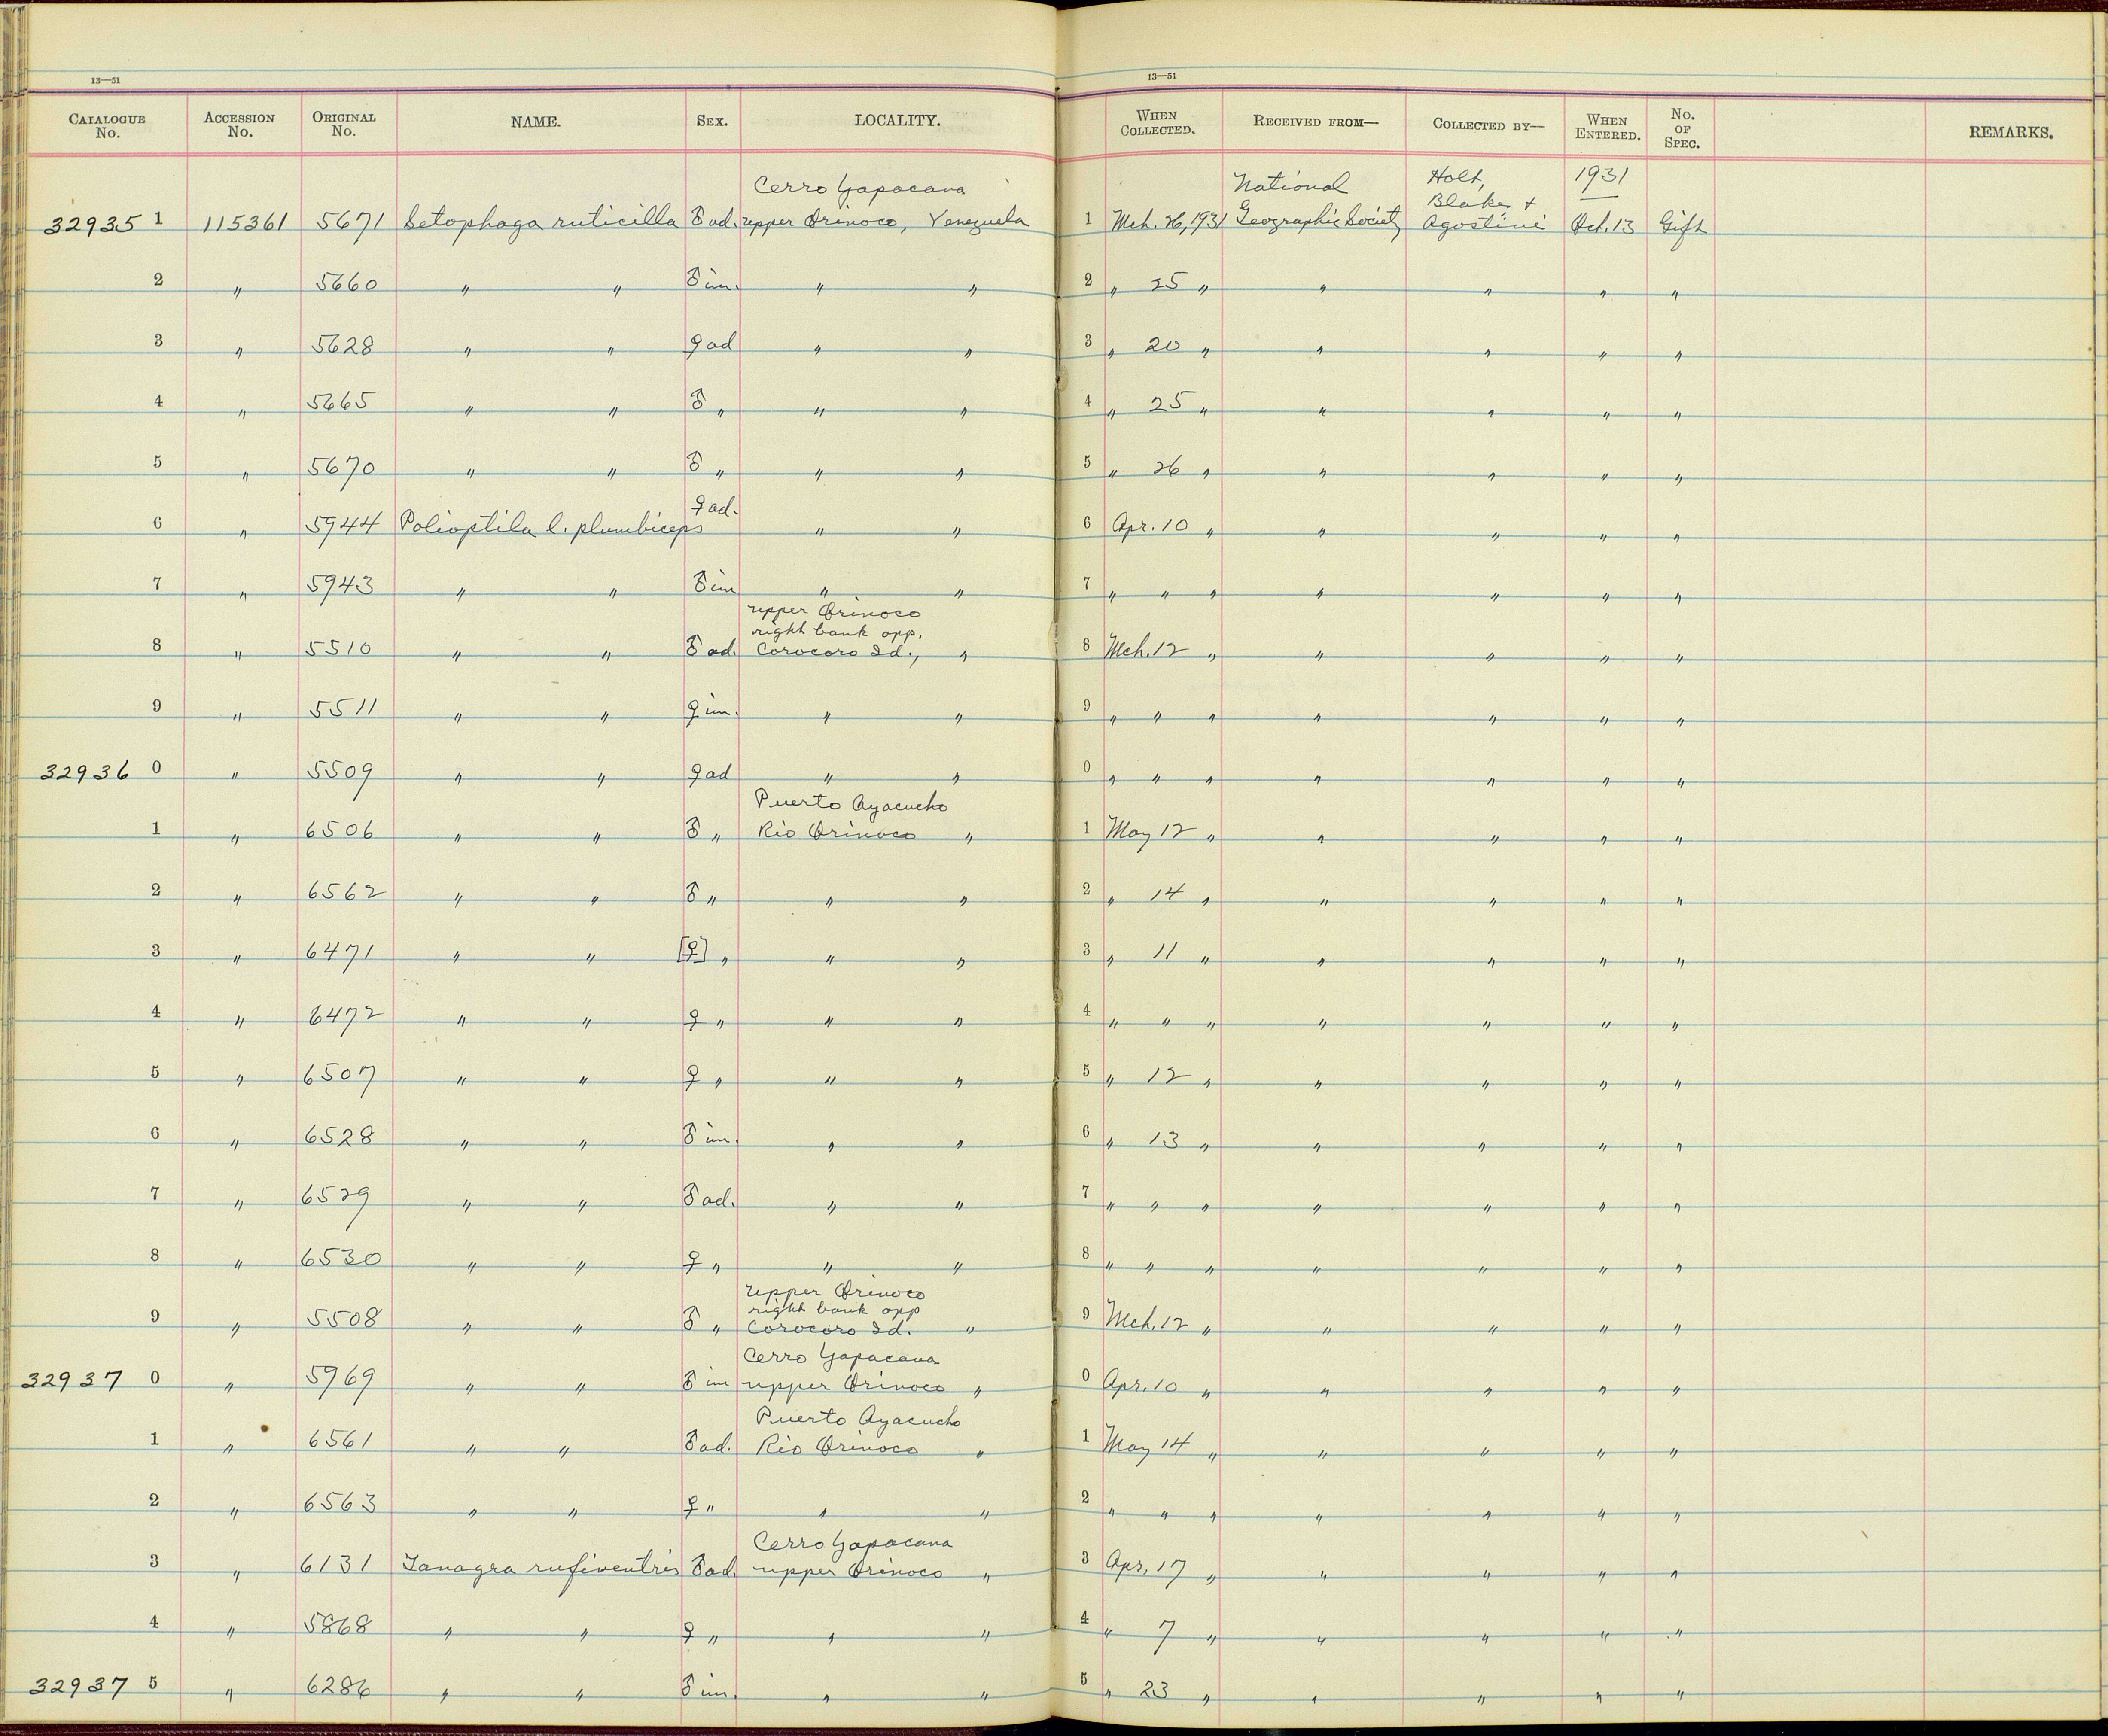 13—51
13—51
CATALOGUE No. ACCESSION No. ORIGINAL No. NAME. SEX. LOCALITY. WHEN COLLECTED. RECEIVED FROM— COLLECTED BY— WHEN ENTERED. No. OF SPEC. REMARKS.
Cerro Yapacana National Holt, 1931
Blake +
32935 1 115361 5671 Setophaga ruticilla ♂ ad. upper Orinoco, Venezuela 1 Mch. 26, 1931 Geographic Society Agostini Oct. 13 Gift
2 " 5660 " " ♂ im. " " 2 " 25 " " " " "
3 " 5628 " " ♀ ad " " 3 " 20 " " " " "
4 " 5665 " " ♂ " " " 4 " 25 " " " " "
5 " 5670 " " ♂ " " " 5 " 26 " " " " "
6 " 5944 Polioptila l. plumbiceps ♀ ad. " " 6 Apr. 10 " " " " "
7 " 5943 " " ♂ im " " 7 " " " " " " "
upper Orinoco
right bank opp.
8 " 5510 " " ♂ ad. Corocoro Id., " 8 Mch. 12 " " " " "
9 " 5511 " " ♀ im. " " 9 " " " " " " "
32936 0 " 5509 " " ♀ ad " " 0 " " " " " " "
Puerto Ayacucho
1 " 6506 " " ♂ " Rio Orinoco " 1 May 12 " " " " "
2 " 6562 " " ♂ " " " 2 " 14 " " " " "
3 " 6471 " " [♀] " " " 3 " 11 " " " " "
4 " 6472 " " ♀ " " " 4 " " " " " " "
5 " 6507 " " ♀ " " " 5 " 12 " " " " "
6 " 6528 " " ♂ im. " " 6 " 13 " " " " "
7 " 6529 " " ♂ ad. " " 7 " " " " " " "
8 " 6530 " " ♀ " " " 8 " " " " " " "
upper Orinoco
right bank opp
9 " 5508 " " ♂ " Corocoro Id. " 9 Mch. 12 " " " " "
Cerro Yapacana
32937 0 " 5969 " " ♂ im upper Orinoco " 0 Apr. 10 " " " " "
Puerto Ayacucho
1 " 6561 " " ♂ ad. Rio Orinoco " 1 May 14 " " " " "
2 " 6563 " " ♀ " " " 2 " " " " " " "
Cerro Yapacana
3 " 6131 Tanagra rufiventris ♂ ad. upper Orinoco " 3 Apr. 17 " " " " "
4 " 5868 " " ♀ " " " 4 " 7 " " " " "
32937 5 " 6286 " " ♂ im. " " 5 " 23 " " " " "